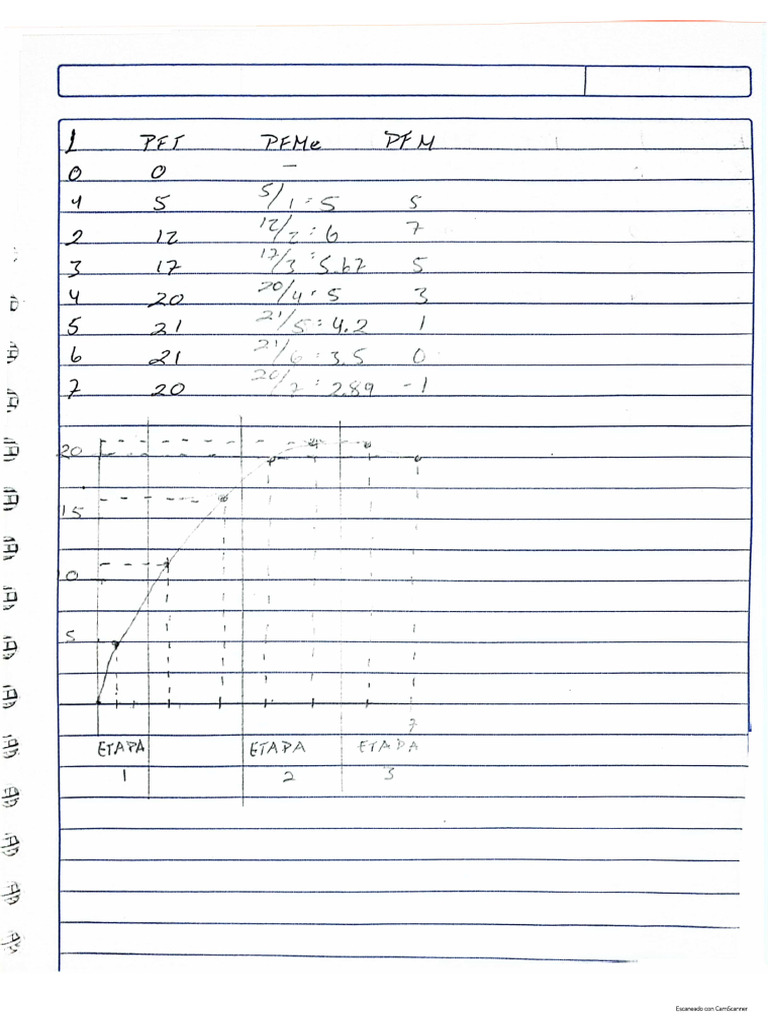 L PFT PFMe PFM
0 0 –
4 5 5/1 : 5 5
2 12 12/2 : 6 7
3 17 17/3 : 5.67 5
4 20 20/4 : 5 3
5 21 21/5 : 4.2 1
6 21 21/6 : 3.5 0
7 20 20/7 : 2.89 -1
20
15
10
5
7
ETAPA ETAPA ETAPA
1 2 3
Escaneado con CamScanner